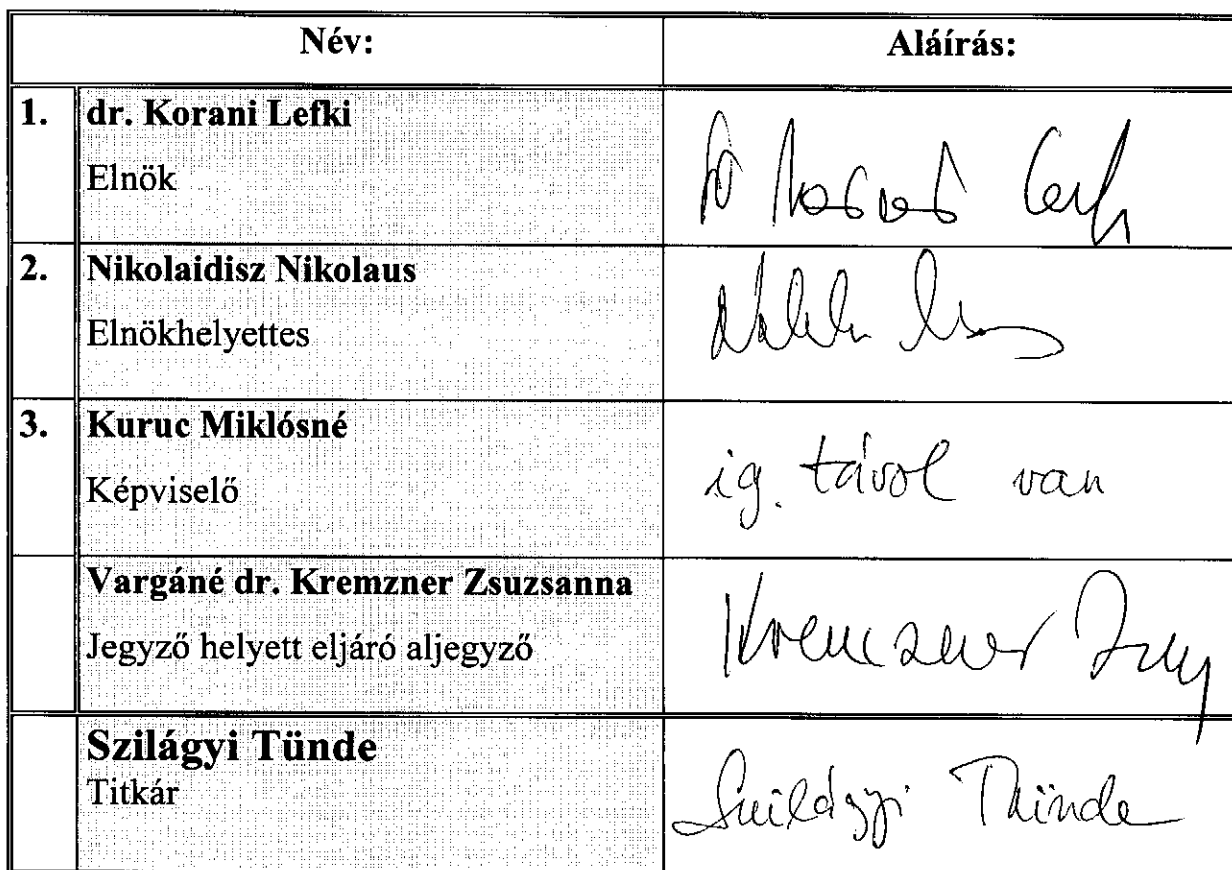 Név: Aláírás:
1. dr. Korani Lefki
Elnök
2. Nikolaidisz Nikolaus
Elnökhelyettes
3. Kuruc Miklósné
Képviselő
ig. távol van
Vargáné dr. Kremzner Zsuzsanna
Jegyző helyett eljáró aljegyző
Kremczner
Szilágyi Tünde
Titkár
Szilágyi Tünde